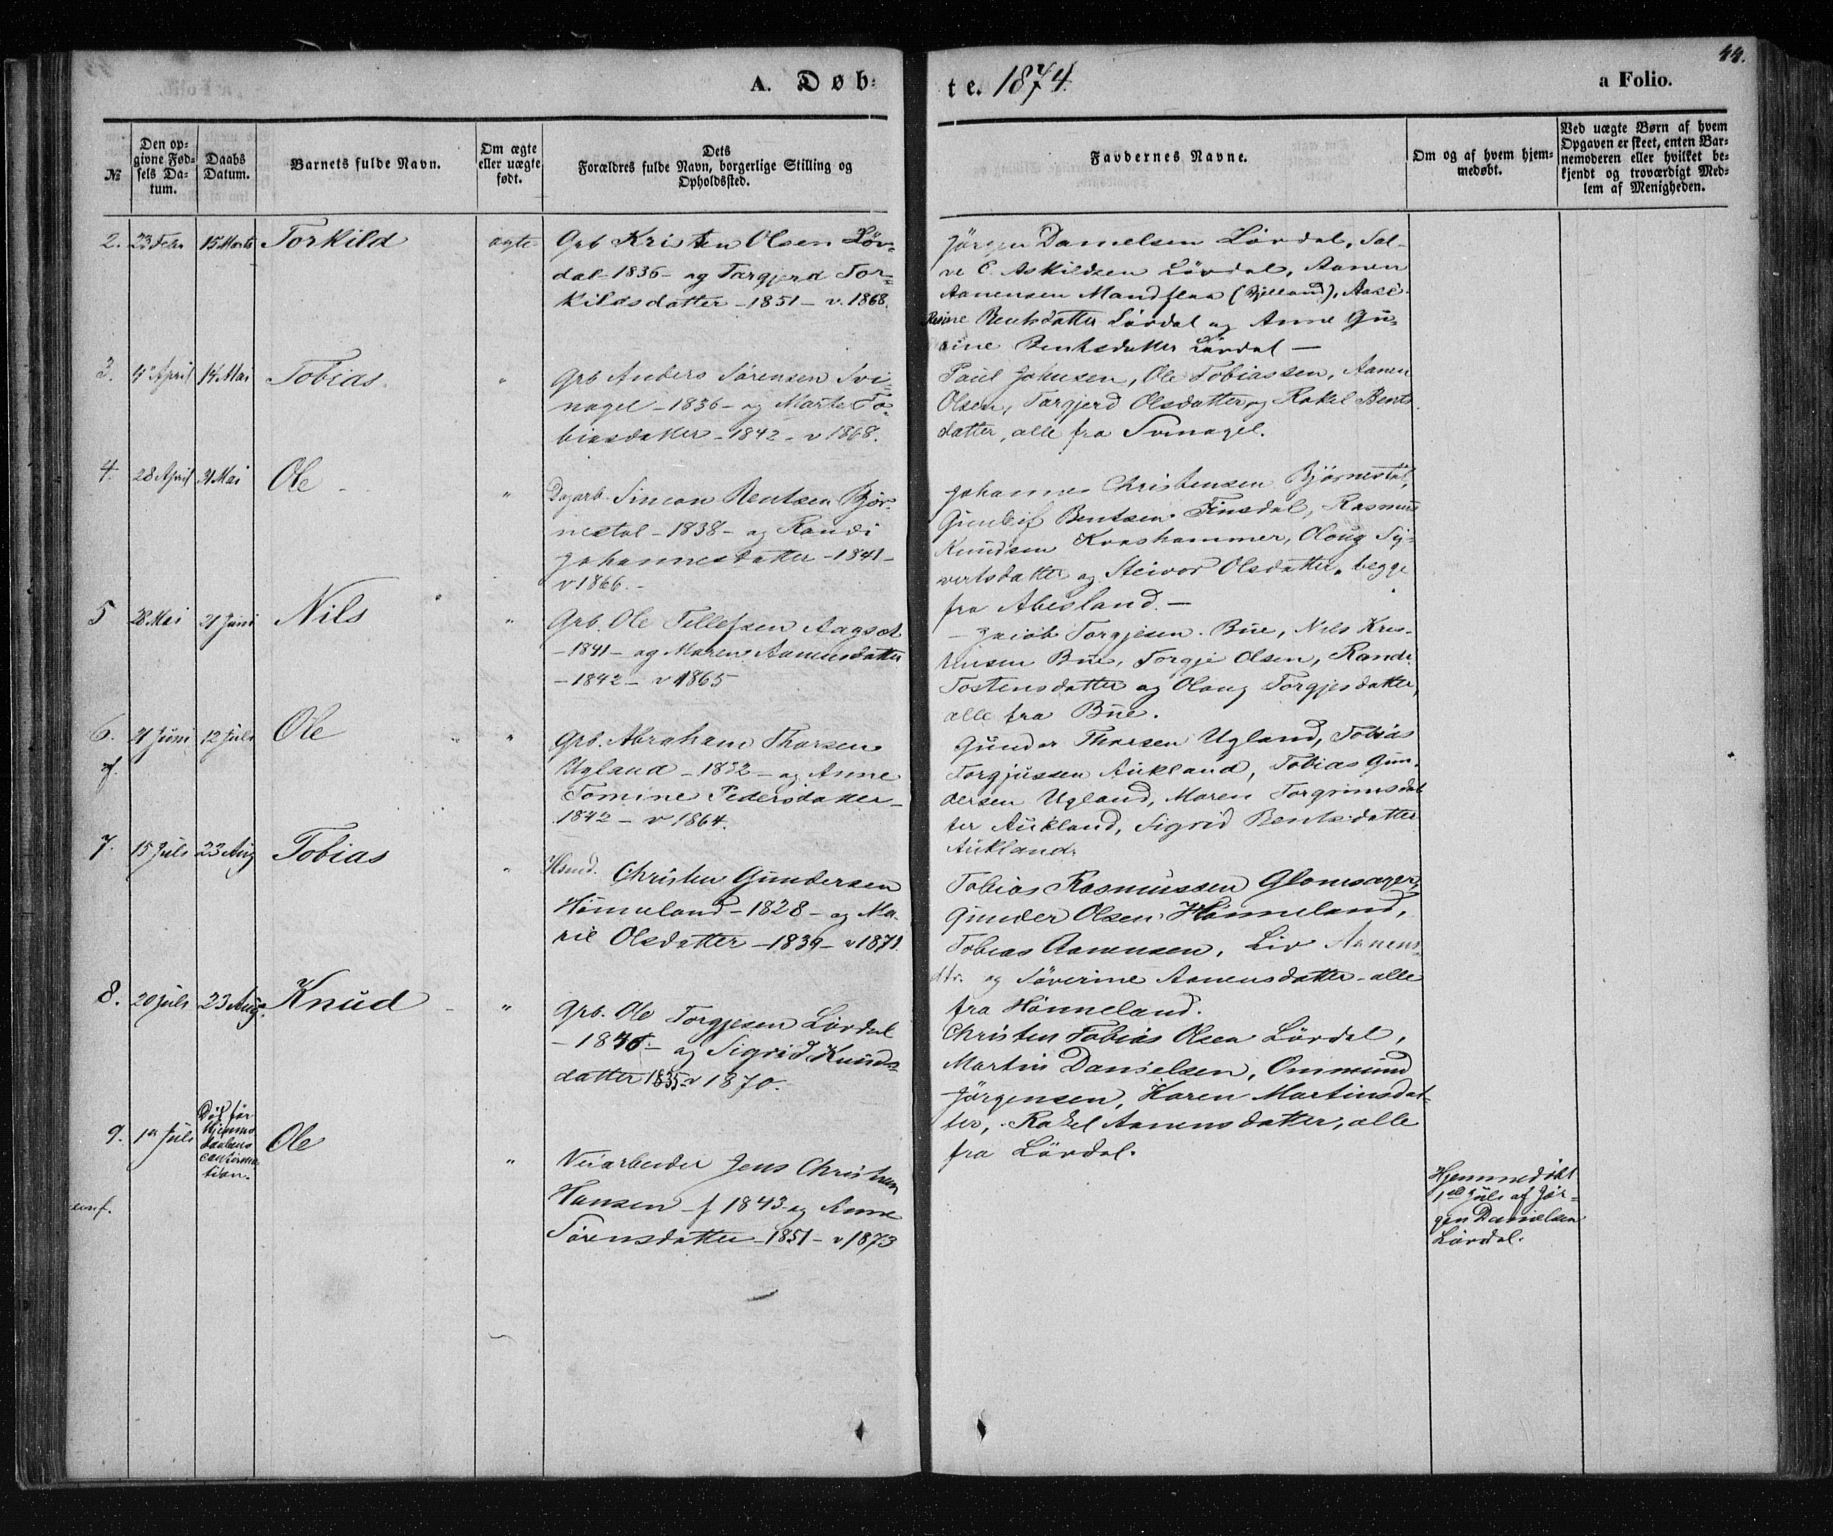 44.
A. Døb-
te. 1874.
a Folio.
№
Den op-
givne Fød-
sels Da-
tum.
Daabs
Datum.
Barnets fulde Navn.
Om ægte
eller uægte
født.
Dets
Forældres fulde Navn, borgerlige Stilling og
Opholdssted.
Faddernes Navne.
Om og af hvem hjem-
medøbt.
Ved uægte Børn af hvem
Opgaven er skeet, enten Bar-
nemoderen eller hvilket be-
kjendt og troværdigt Med-
lem af Menigheden.
2. 23 Febr 15 Marts Torkild ægte Grb Kristen Olsen Løv-
dal - 1836 - og Targjerd Tor-
kildsdatter - 1851 - v. 1868.
Jørgen Danielsen Lövdal, Sal-
ve E. Askildsen Lövdal, Aanen
Aanensen Mandflaa (Bjelland), Axel
Resine Bentsdatter Lövdal og Anne Gu-
rine Bentsdatter Lövdal —
3. 4de April 14 Mai Tobias " Grb Anders Sørensen Svi-
nagel - 1836 - og Marte To-
biasdatter - 1842 - v 1868.
Paul Johnsen, Ole Tobiassen, Aanen
Olsen, Targjerd Olsdatter og Rakel Bents
datter, alle fra Svinagel.
4. 28 April 31 Mai Ole " Dagarb. Simeon Bentsen Bjør-
nestøl - 1838 - og Randi
Johannesdatter - 1841 -
v 1866. -
Johannes Christensen Bjørnestøl,
Gunleif Bentsen Finsdal, Rasmus
Knudsen Kvashammer, Oloug Sy-
vertsdatter og Steivor Olsdatter, begge
fra Abesland. —
5 28 Mai 21 Juni Nils " Grb. Ole Tellefsen Aagsæt
- 1841 - og Maren Aanensdatter
- 1842 - v 1865
— Jacob Torgjesen Bue, Nils Kris-
tensen Bue, Torgje Olsen, Randi
Tostensdatter og Oloug Torgjesdatter,
alle fra Bue.
6. 21 Juni 12 Juli Ole " Grb. Abraham Thorsen
Ugland - 1832 - og Anne
Tomine Pedersdatter -
1842 - v 1864.
Gunder Thorsen Ugland, Tobias
Torgjussen Aukland, Tobias Gun-
dersen Ugland, Maren Torgrimsdat
ter Aukland, Sigrid Bentsdatter
Aukland.
7. 15 Juli 23 Aug Tobias " Hsmd. Christen Gundersen
Hønneland - 1828 - og Ma-
rie Olsdatter - 1839 - v 1871.
Tobias Rasmussen Glomsager,
Gunder Olsen Hønneland,
Tobias Aanensen, Liv Aanens-
dtr. og Söverine Aanensdatter - alle
fra Hønneland.
8. 20 Juli 23 Aug. Knud " Grb. Ole Torgjesen Lövdal
- 1836 - og Sigrid Knuds-
datter 1835 v 1870.
Christen Tobias Olsen Lövdal,
Martin Danielsen, Ommund
Jørgensen, Karen Martinsdat-
ter, Rakel Aanensdatter, alle
fra Lövdal.
9. 1st Juli Död før
Hjemme
daabens
confirma
tion. Ole " Veiarbeider Jens Christian
Hansen - f 1843 og Anne
Sörensdatter - 1851 - v 1873
Hjemmedøbt
1st Juli af Jør-
gen Danielsen
Lövdal.